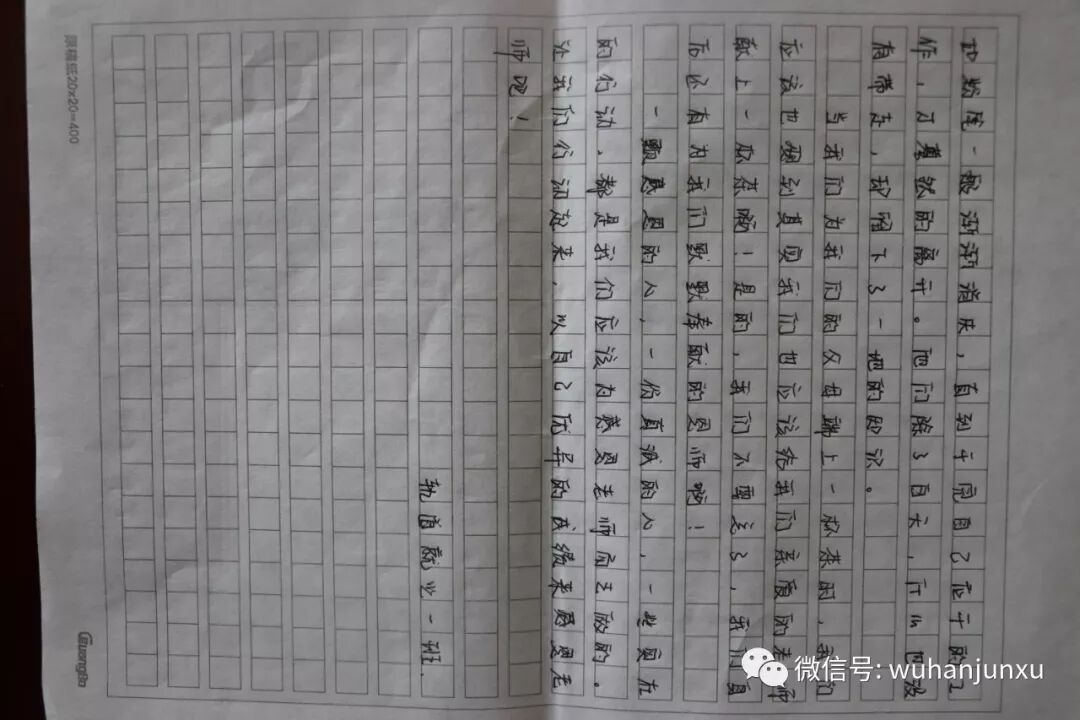 如数隆一般渐渐消失，直到干完自己应干的工
作，才蓦然的离开。他们除了白头，什么也没
有带走，却留下了一地的知识。
当我们为我们的父母端上一杯茶时，我们
应该也想到其实我们也应该给我们亲爱的老师
献上一杯茶啊！是的，我们不要忘了，我们身
后还有为我们默默奉献的恩师啊！
一颗感恩的人，一份真诚的人，一些实在
的行动，都是我们应该为感恩老师而去做的。
让我们行动起来，以自己优异的成绩来感恩老
师吧！
轨道就业一班.
限格纸20×20=400
Guangbo
微信号: wuhanjunxu